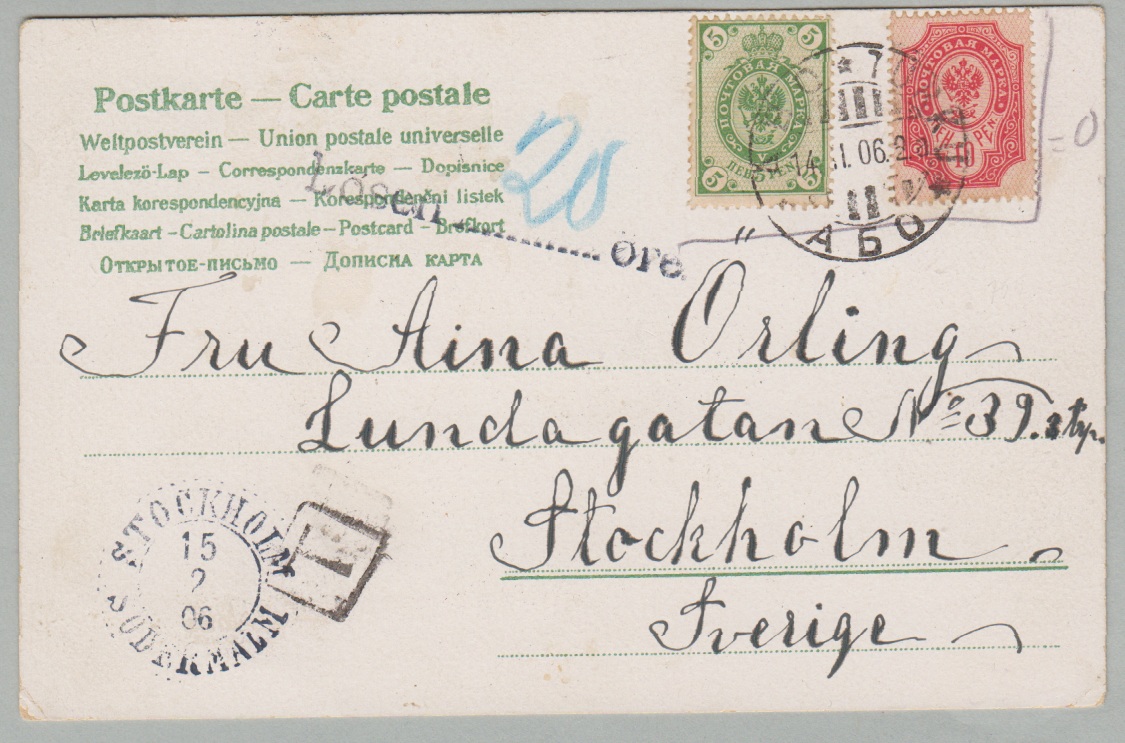 Postkarte — Carte postale
Weltpostverein — Union postale universelle
Levelezö-Lap — Correspondenzkarte — Dopisnice
Karta korespondencyjna — Korespondenčni listek
Briefkaart – Cartolina postale – Postcard – Brefkort
Открытое-письмо — Дописна карта
Lösen 20 öre
5 5
ПОЧТОВАЯ МАРКА
5 5
ПОЧТОВАЯ МАРКА
10
06.2
АБО
= 0
Fru Aina Örling
Lundagatan No 39. 3 trp.
Stockholm
Sverige
STOCKHOLM
15
2
06
SÖDERMALM
T